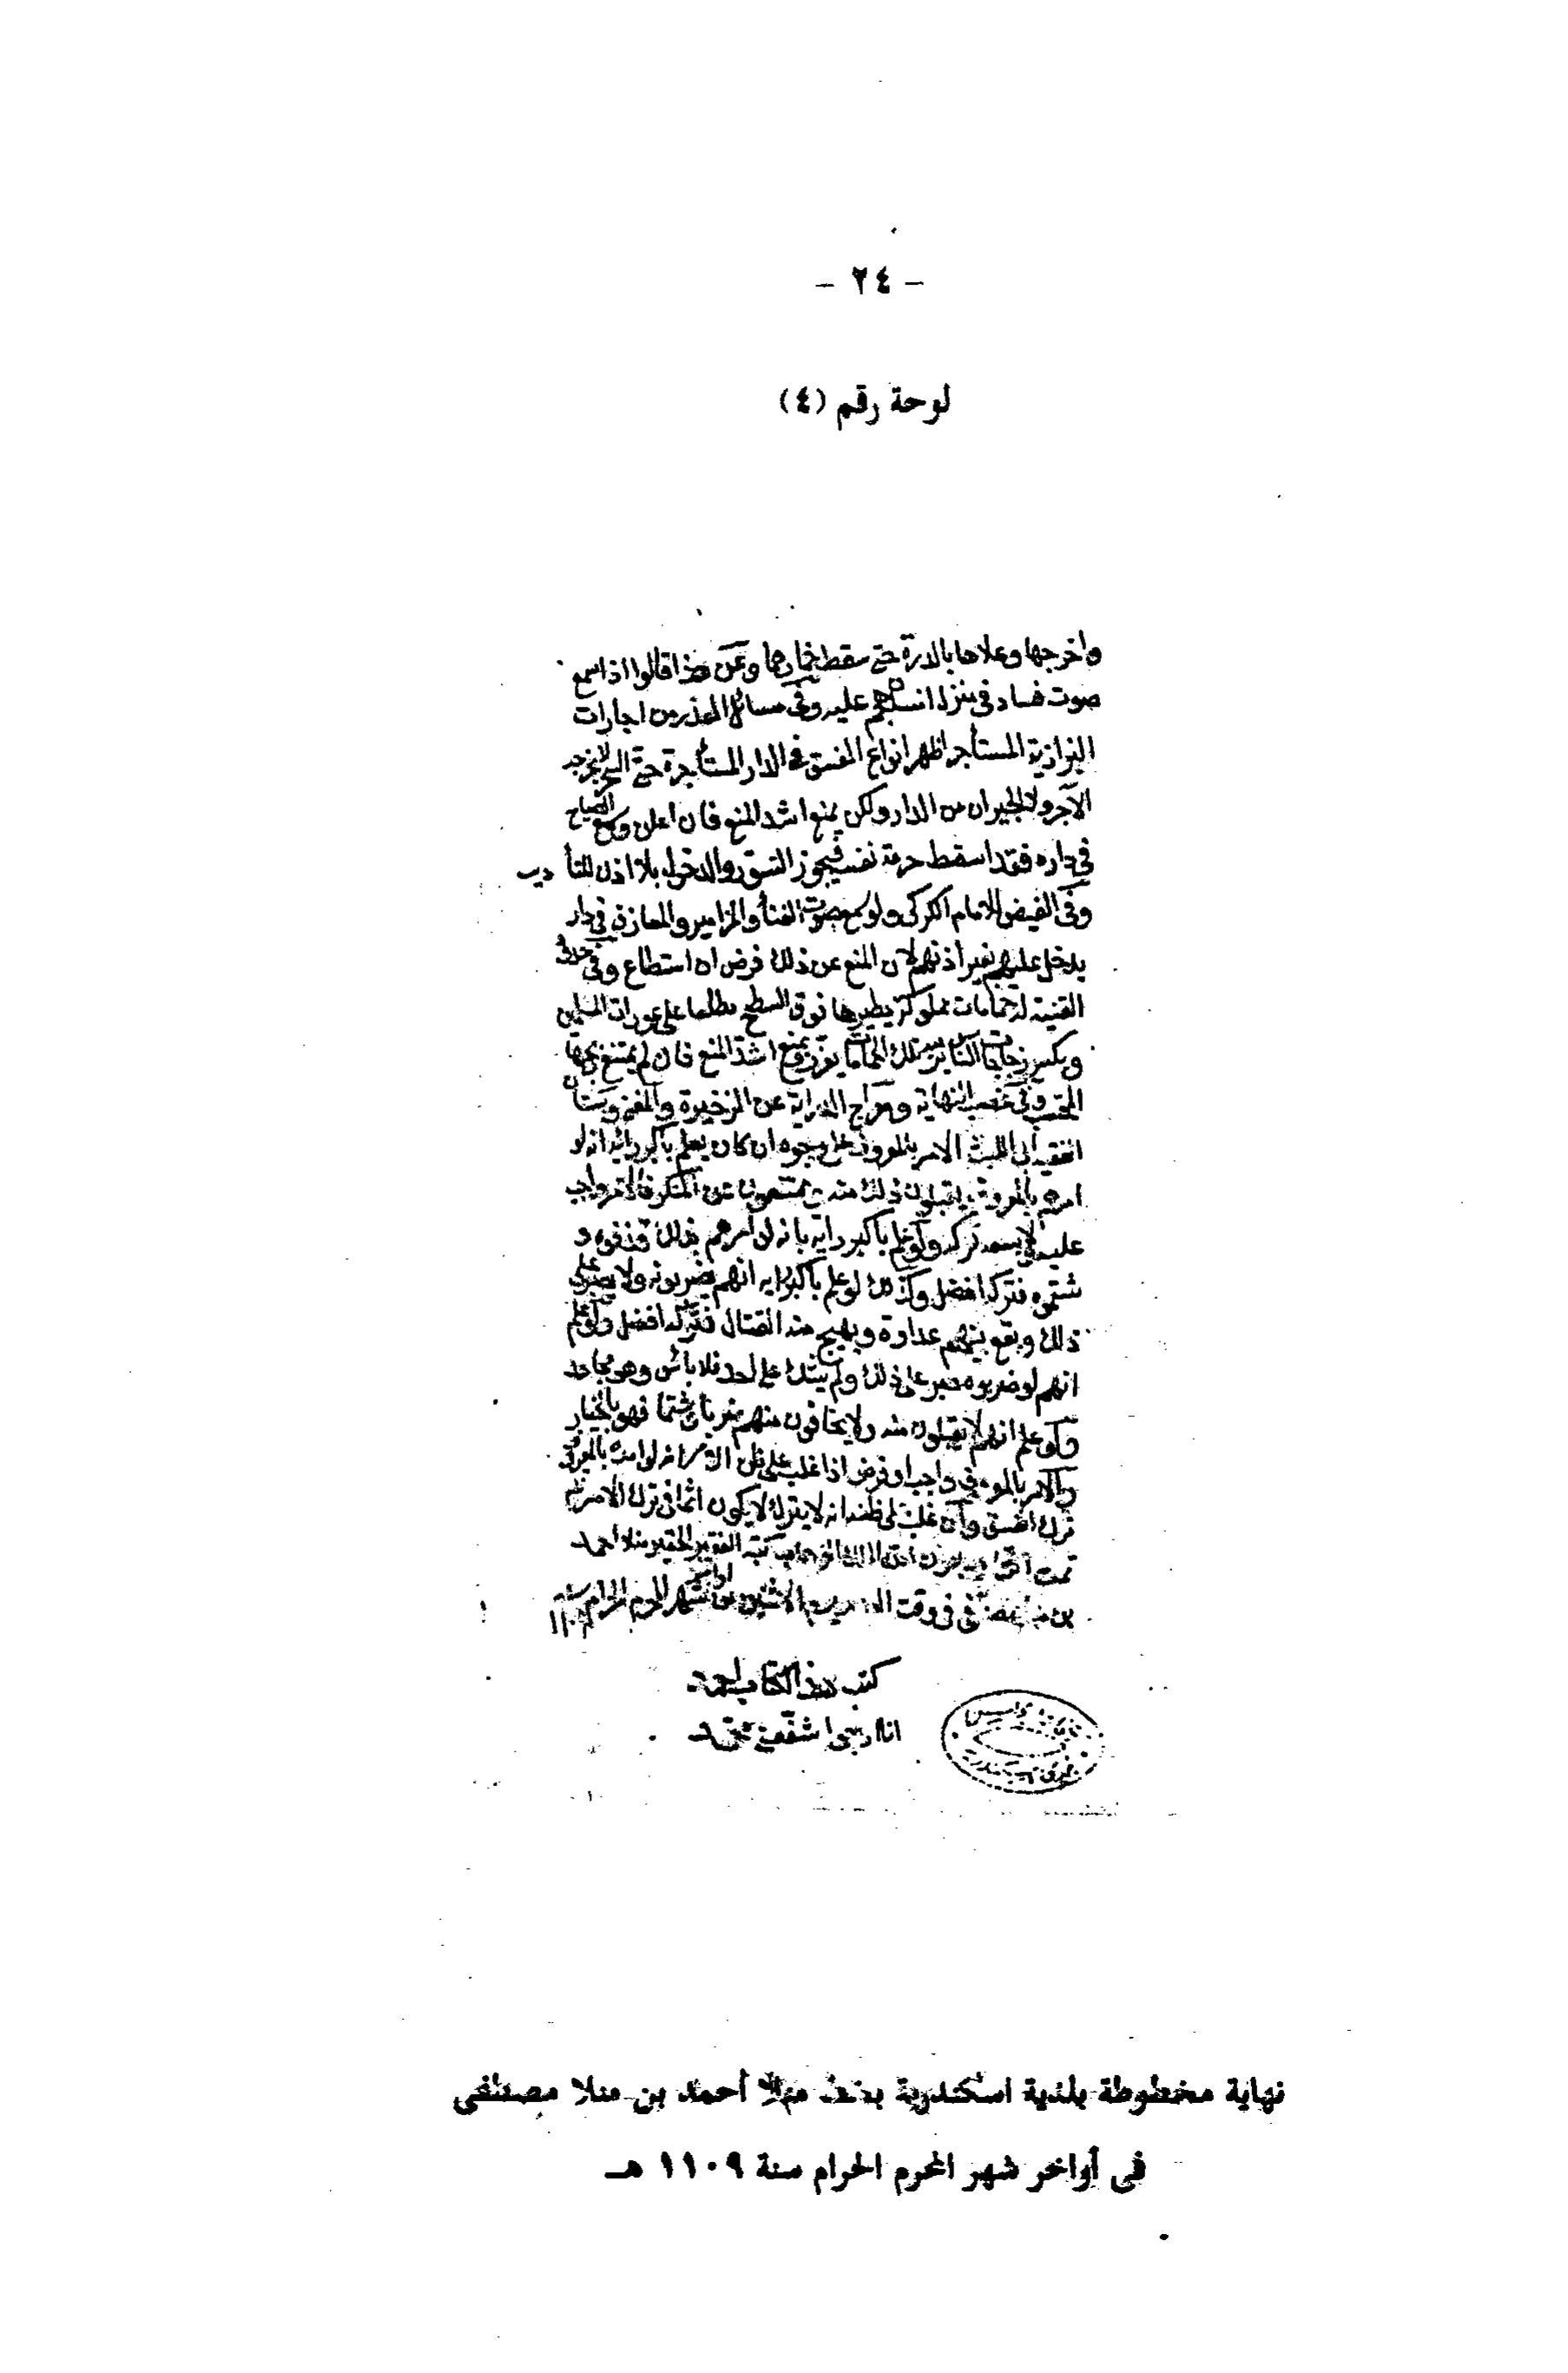 - ٢٤ -
لوحة رقم (٤)
واخرجها وعلاها بالدرة حتى سقط خمارها وعن هذا قالوا اذا سمع
صوت فساد في منزل انسان هجم عليه وفي مسائل العذر من اجارات
البزازية المستأجر اظهر انواع الفسق في الدار المستأجرة حتى السحر لا يخرجه
الآجر ولا الجيران من الدار ولكن يمنع اشد المنع فان اعلن وسمع الصياح
في داره فقد اسقط حرمة نفسه فيجوز التسور والدخول بلا اذن للتأديب
وفي الفيض للامام الكركي ولو سمع صوت الغنأ والمزامير والمعازف في دار
يدخل عليهم بغير اذنهم لان المنع عن ذلك فرض ان استطاع وفي
القنية له حمامات مملوكة يطيرها فوق السطح مطلعا على عورات المسلمين
ويكسر زجاجات الناس برميه تلك الحمامات يعزر ويمنع اشد المنع فان لم يمتنع ذبحها
المحتسب وفي غصب النهاية ومعراج الدراية عن الذخيرة والمغني وبستان
الفقيه ابي الليث الامر بالمعروف على وجوه ان كان يعلم باكبر رأيه انه لو
امرهم بالمعروف يقبلون ذلك منه ويمتنعون عن المنكر فالامر واجب
عليه لا يسعه تركه ولو علم باكبر رايه بانه لو امرهم بذلك قذفوه و
شتموه فتركه افضل وكذلك لو علم باكبر رايه انهم يضربونه ولا يصبر على
ذلك ويقع بينهم عداوة ويهيج منه القتال فتركه افضل ولو علم
انهم لو ضربوه صبر على ذلك ولم يشك على احد فلا باس وهو مجاهد
ولو علم انهم لا يقبلون منه ولا يخاف منهم ضربا ولا شتما فهو بالخيار
والامر بالمعروف واجب او فرض اذا غلب على ظن الآمر انه لو امره بالمعروف
ترك الفسق وان غلب على ظنه انه لا يترك لا يكون اثما في ترك الامر
تمت كتبه الفقير الحقير منلا احمد
بن منلا مصطفى في وقت يوم الاثنين من اواخر شهر المحرم الحرام سنة ١١٠٩
كتب هذا الكتاب احمد
نهاية مخطوطة بلدية اسكندرية بخط منلا أحمد بن منلا مصطفى
فى أواخر شهر المحرم الحرام سنة ١١٠٩ هـ